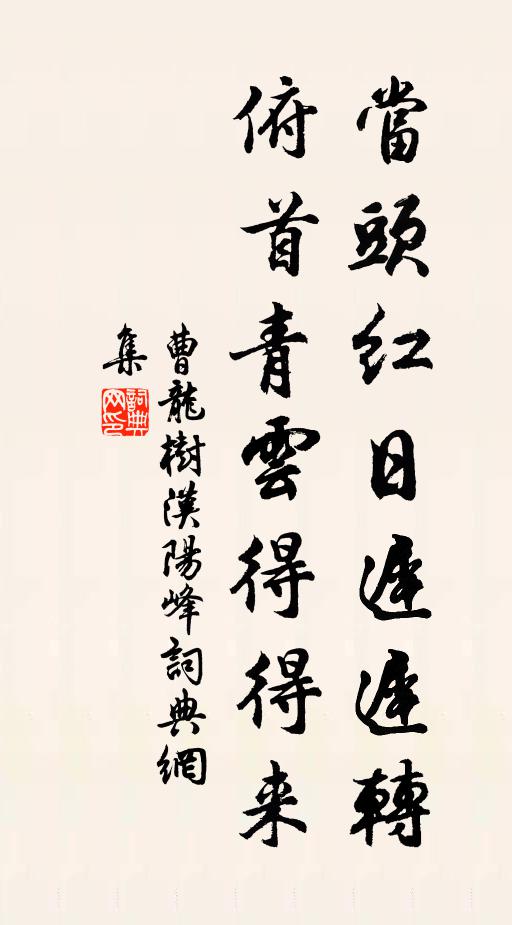 當頭紅日遲遲轉
俯首青雲得得来
曹龍樹漢陽峰詞典網
集
詞典
网印